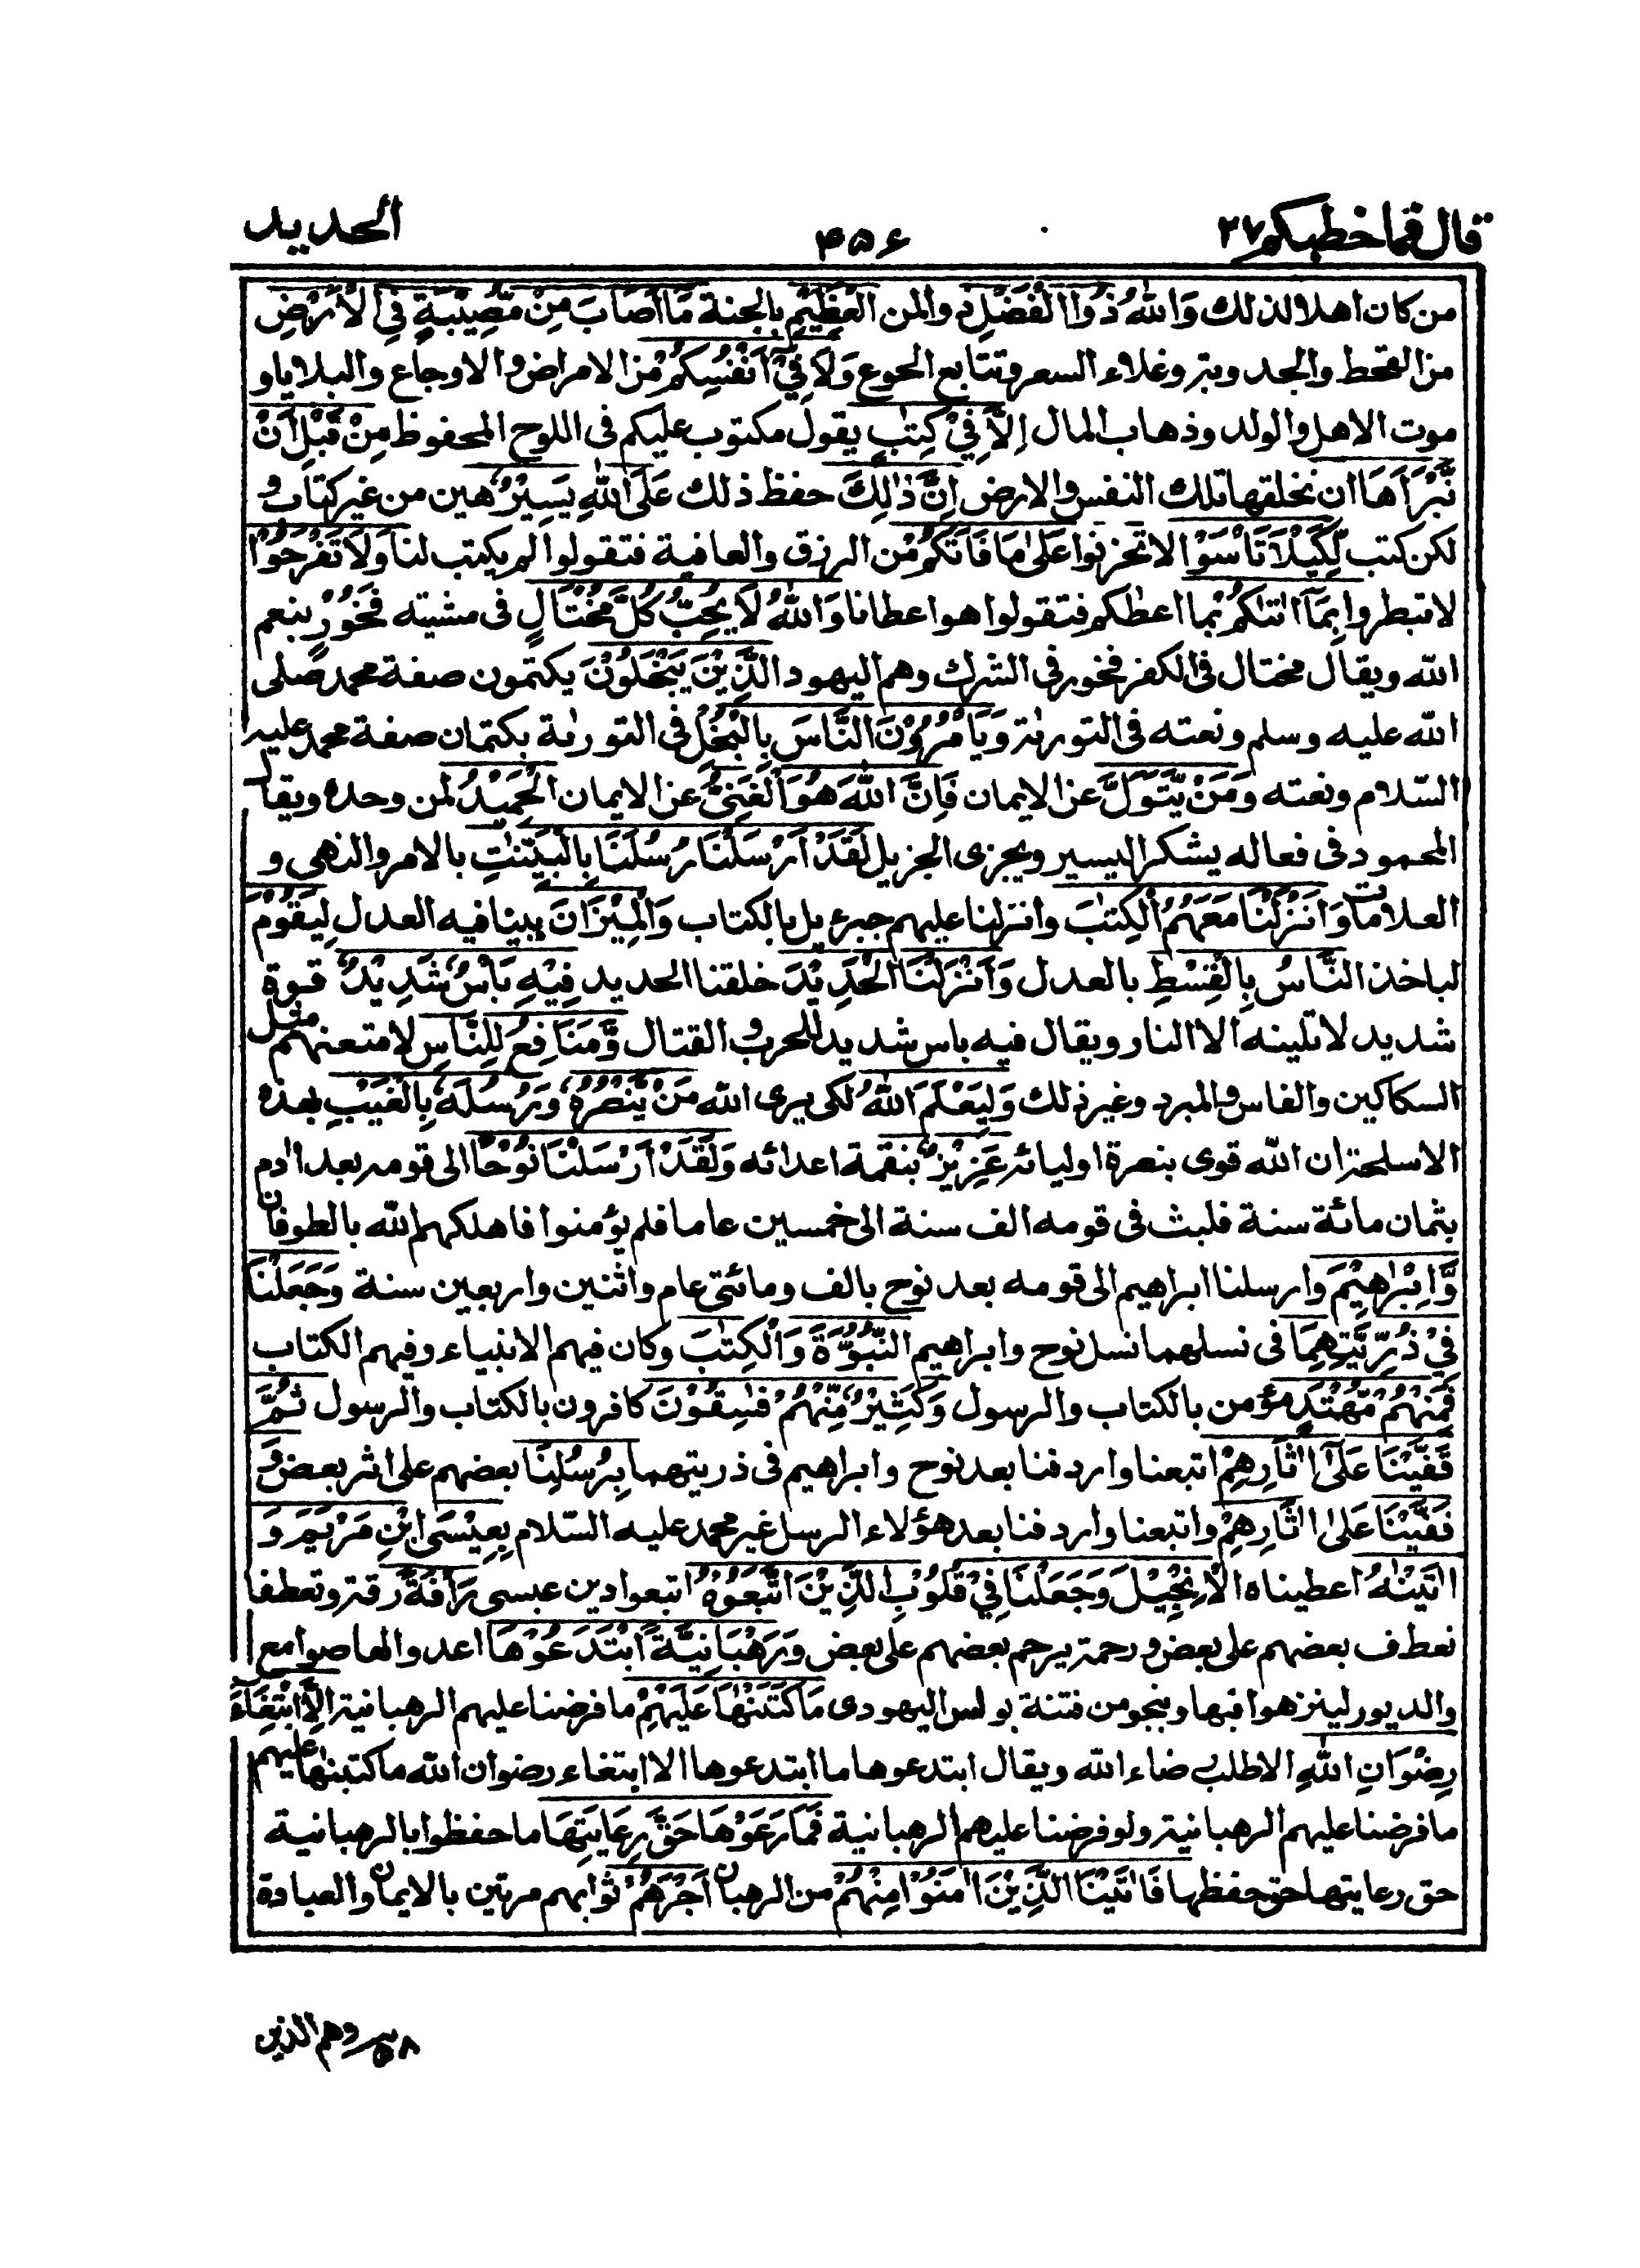 قال فما خطبكم ٢٧
٤٥٦
الحديد
من كان اهلا لذلك وَاللّٰهُ ذُوا الْفَضْلِ ذو والمن الْعَظِيْمِ بالجنة مَا اَصَابَ مِنْ مُّصِيْبَةٍ فِى الْاَرْضِ
من القحط والجدوبة وغلاء السعر وتتابع الجوع وَلَا فِيْ اَنْفُسِكُمْ من الامراض والاوجاع والبلايا و
موت الاهل والولد وذهاب المال اِلَّا فِيْ كِتٰبٍ يقول مكتوب عليكم فى اللوح المحفوظ مِنْ قَبْلِ اَنْ
نَّبْرَاَهَا ان نخلقها تلك النفس والارض اِنَّ ذٰلِكَ حفظ ذلك عَلَى اللّٰهِ يَسِيْرٌ هين من غير كتاب و
لكن كتب لِّكَيْلَا تَاْسَوْا لا تحزنوا عَلٰى مَا فَاتَكُمْ من الرزق والعافية فتقولوا لم يكتب لنا وَلَا تَفْرَحُوْا
لا تبطروا بِمَآ اٰتٰىكُمْ بما اعطٰكم فتقولوا هو اعطانا وَاللّٰهُ لَا يُحِبُّ كُلَّ مُخْتَالٍ فى مشيته فَخُوْرٍ بنعم
الله ويقال مختال فى الكفر فخور فى الشرك وهم اليهود الَّذِيْنَ يَبْخَلُوْنَ يكتمون صفة محمد صلى
الله عليه وسلم ونعته فى التورٰية وَيَاْمُرُوْنَ النَّاسَ بِالْبُخْلِ فى التورٰية بكتمان صفة محمد عليه
السّلام ونعته وَمَنْ يَّتَوَلَّ عن الايمان فَاِنَّ اللّٰهَ هُوَ الْغَنِىُّ عن الايمان الْحَمِيْدُ لمن وحده ويقال
المحمود فى فعاله يشكر اليسير ويجزى الجزيل لَقَدْ اَرْسَلْنَا رُسُلَنَا بِالْبَيِّنٰتِ بالامر والنهى و
العلامات وَاَنْزَلْنَا مَعَهُمُ الْكِتٰبَ وانزلنا عليهم جبرءيل بالكتاب وَالْمِيْزَانَ بينا فيه العدل لِيَقُوْمَ
لياخذ النَّاسُ بِالْقِسْطِ بالعدل وَاَنْزَلْنَا الْحَدِيْدَ خلقنا الحديد فِيْهِ بَاْسٌ شَدِيْدٌ قوة
شديد لا تلينه الا النار ويقال فيه باس شديد للحرب و القتال وَّمَنَافِعُ لِلنَّاسِ لامتعتهم مثل
السكاكين والفاس والمبرد وغير ذلك وَلِيَعْلَمَ اللّٰهُ لكى يرى الله مَنْ يَّنْصُرُهٗ وَرُسُلَهٗ بِالْغَيْبِ بهذه
الاسلحة ان الله قوى بنصرة اوليائه عَزِيْزٌ بنقمة اعدائه وَلَقَدْ اَرْسَلْنَا نُوْحًا الى قومه بعد اٰدم
بثمان مائة سنة فلبث فى قومه الف سنة الى خمسين عاما فلم يؤمنوا فاهلكهم الله بالطوفان
وَّاِبْرٰهِيْمَ وارسلنا ابراهيم الى قومه بعد نوح بالف ومائتى عام واثنين واربعين سنة وَجَعَلْنَا
فِيْ ذُرِّيَّتِهِمَا فى نسلهما نسل نوح وابراهيم النُّبُوَّةَ وَالْكِتٰبَ وكان فيهم الانبياء وفيهم الكتاب
فَمِنْهُمْ مُّهْتَدٍ مؤمن بالكتاب والرسول وَكَثِيْرٌ مِّنْهُمْ فٰسِقُوْنَ كافرون بالكتاب والرسول ثُمَّ
قَفَّيْنَا عَلٰٓى اٰثَارِهِمْ اتبعنا واردفنا بعد نوح وابراهيم فى ذريتهما بِرُسُلِنَا بعضهم على اثر بعض وَ
قَفَّيْنَا عَلٰى اٰثَارِهِمْ واتبعنا واردفنا بعد هؤلاء الرسل غير محمد عليه السّلام بِعِيْسَى ابْنِ مَرْيَمَ وَ
اٰتَيْنٰهُ اعطيناه الْاِنْجِيْلَ وَجَعَلْنَا فِيْ قُلُوْبِ الَّذِيْنَ اتَّبَعُوْهُ اتبعوا دين عيسى رَاْفَةً رقة وتعطفا
تعطف بعضهم على بعض ورحمة يرحم بعضهم على بعض وَرَهْبَانِيَّةً ابْتَدَعُوْهَا اعدوا لها صوامع
والديور لينزهوا فيها وينجو من فتنة بولس اليهودى مَا كَتَبْنٰهَا عَلَيْهِمْ ما فرضنا عليهم الرهبانية اِلَّا ابْتِغَاءَ
رِضْوَانِ اللّٰهِ الا طلب ضاء الله ويقال ابتدعوها ما ابتدعوها الا ابتغاء رضوان الله ما كتبنٰها عليهم
ما فرضنا عليهم الرهبانية ولو فرضنا عليهم الرهبانية فَمَا رَعَوْهَا حَقَّ رِعَايَتِهَا ما حفظوا بالرهبانية
حق رعايتها حق حفظها فَاٰتَيْنَا الَّذِيْنَ اٰمَنُوْا مِنْهُمْ من الرهبان اَجْرَهُمْ ثوابهم مرتين بالايمان والعبادة
وهم الذين